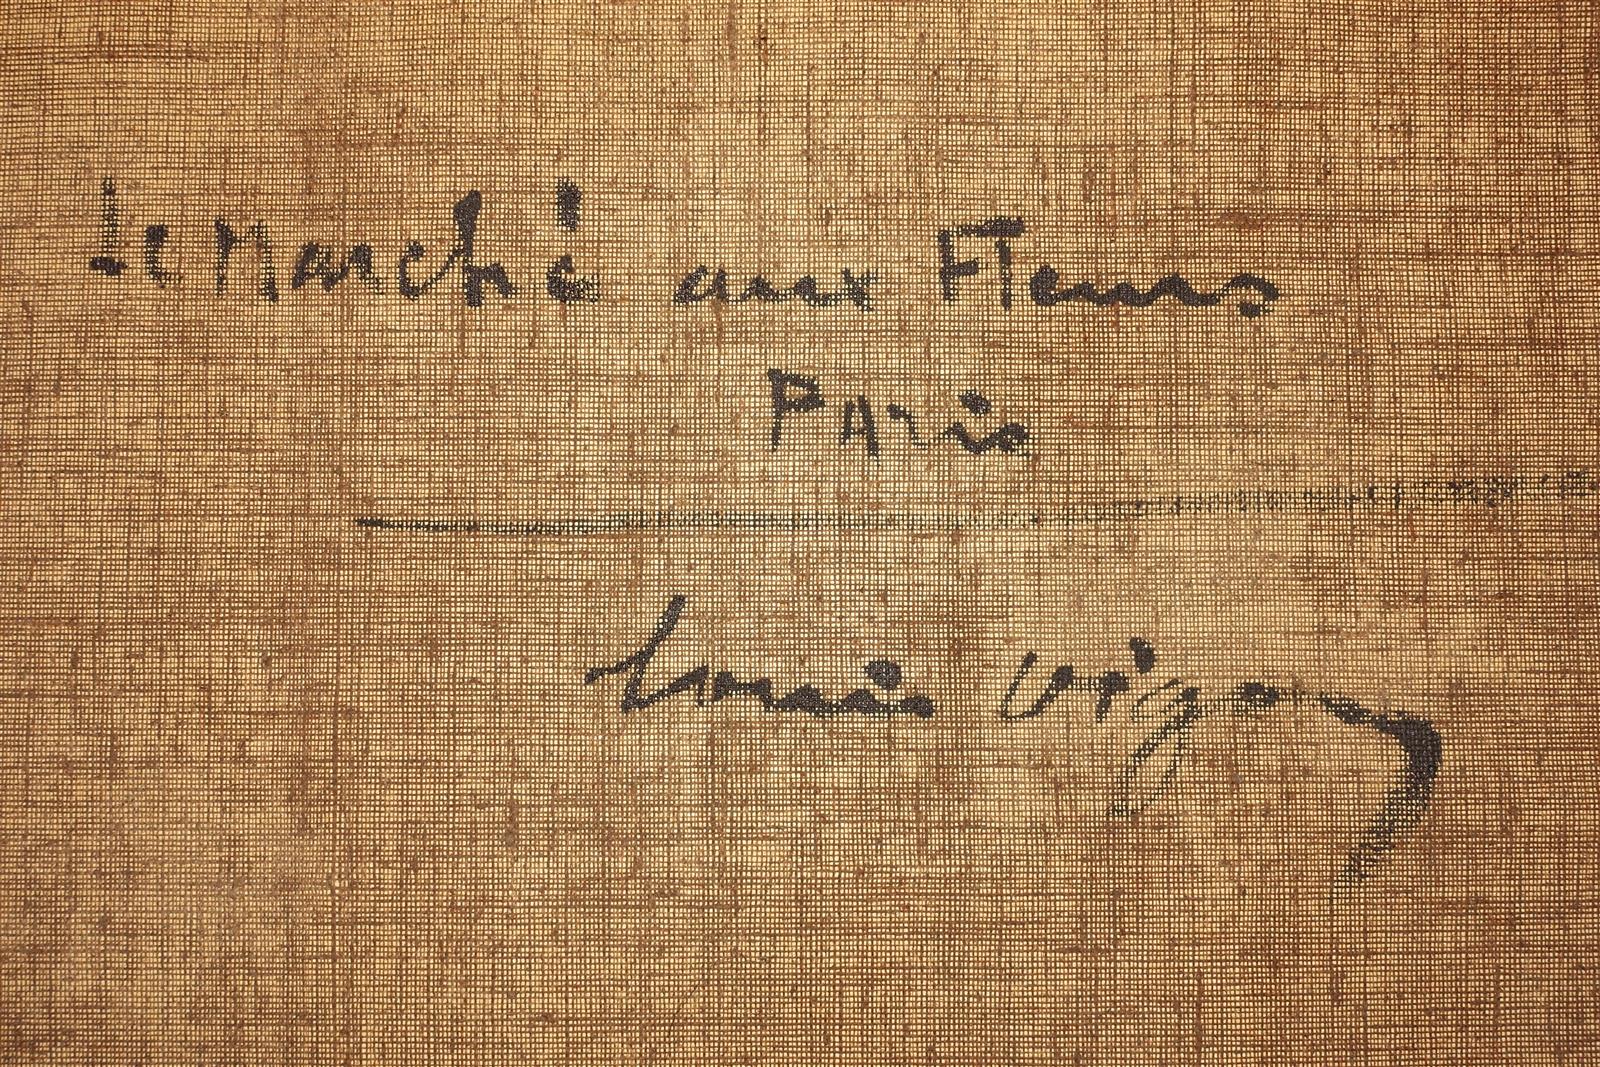 Le Marché aux Fleurs
PAris
Louis Vigon